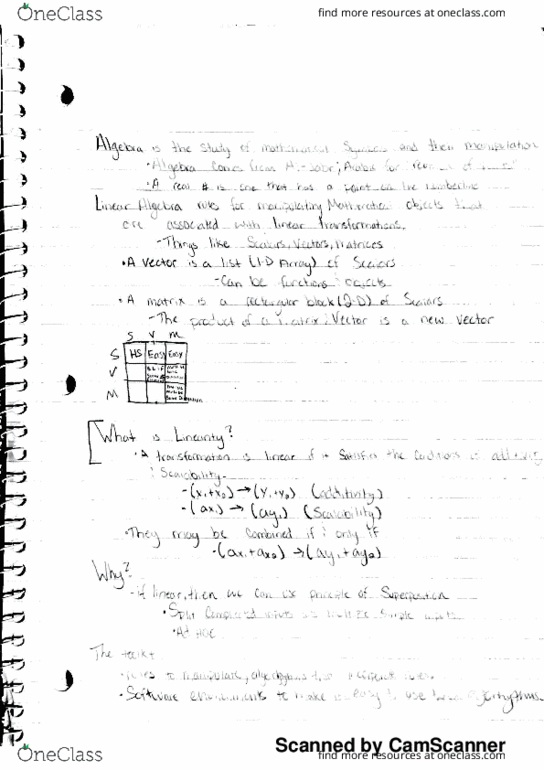 OneClass
find more resources at oneclass.com
Algebra is the study of mathematical Symbols and their manipulation
• Algebra comes from Al-Jabr, Arabic for
• A real # is one that has a point on the numberline
Linear Algebra rules for manipulating Mathematical objects that
are associated with linear transformations.
- Things like Scalars, Vectors, Matrices
• A Vector is a list (1-D Array) of Scalars
- Can be functions objects
• A matrix is a rectangular block (2-D) of Scalars
- The product of a Matrix : Vector is a new vector
S V M
S HS Easy Easy
V
M
What is Linearity?
• A transformation is linear if it Satisfies the Conditions of
: Scalability.
- (x₁+x₂) → (y₁+y₂) (additivity)
- (ax₁) → (ay₁) (Scalability)
• They may be Combined if : only if
- (ax₁+ax₂) → (ay₁+ay₂)
Why?
- if linear, then we can use principle of Superposition
• Split Simple inputs
•
The toolkit
• to manipulate,
• Software environments to make it easy to use algorithms.
OneClass
Scanned by CamScanner
find more resources at oneclass.com